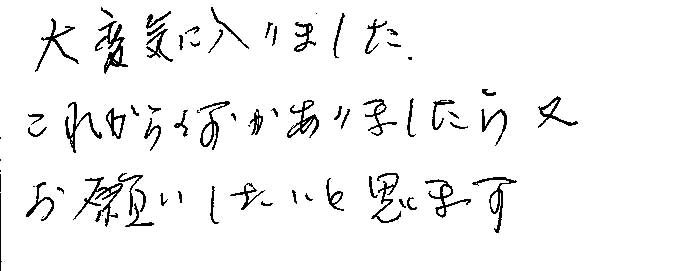 大変気に入りました.
これからも何かありましたら又
お願いしたいと思います